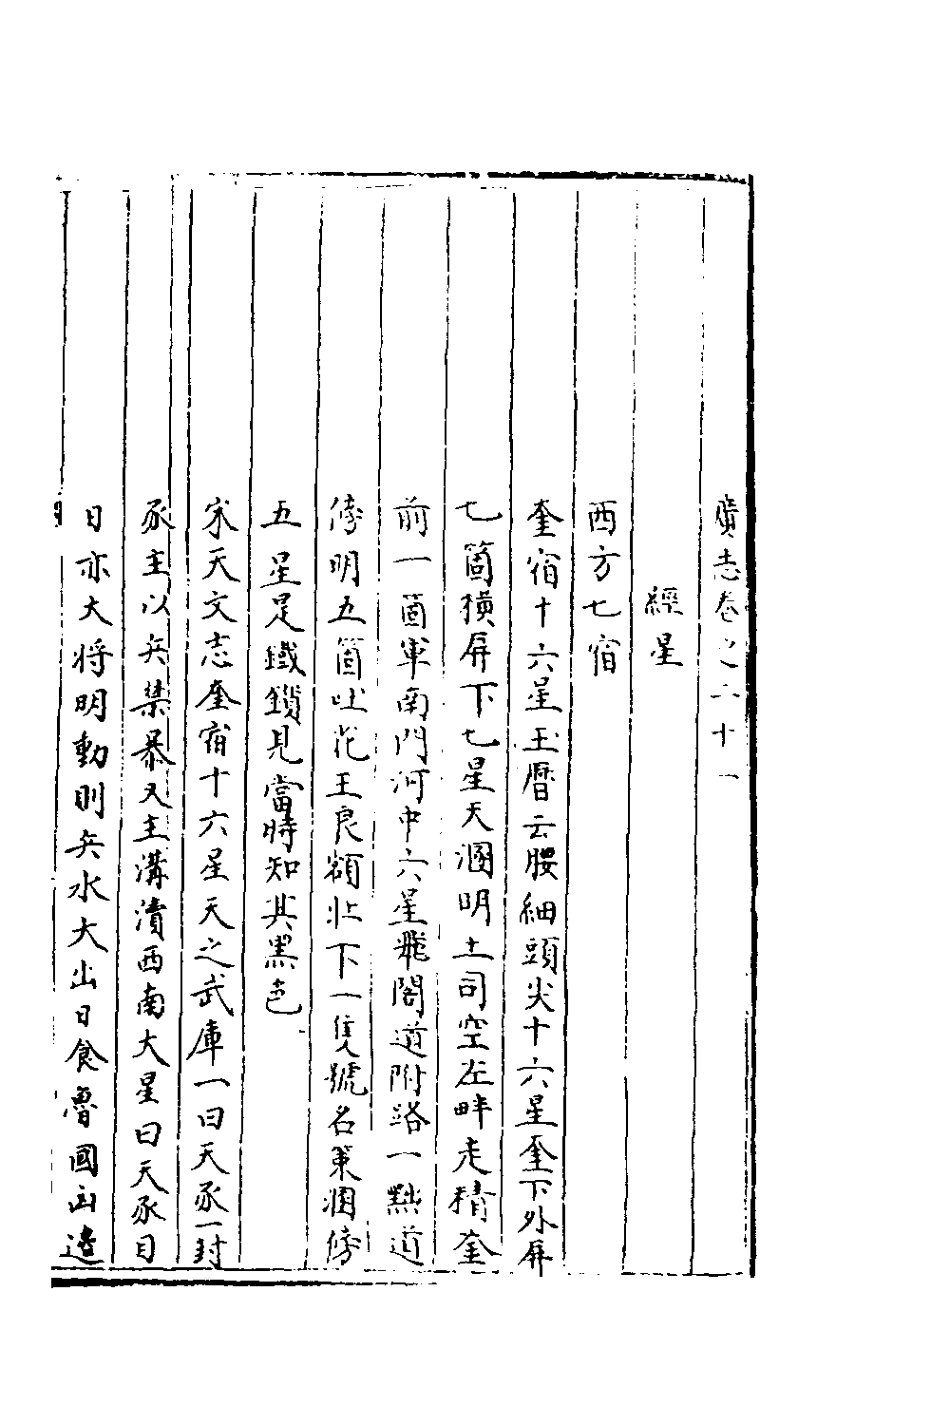 廣志卷之二十一
經星
西方七宿
奎宿十六星玉曆云腰細頭尖十六星奎下外屏
七箇横屏下七星天溷明土司空左畔走積奎
前一箇軍南門河中六星飛閣道附路一點道
傍明五箇吐花王良額壯下一隻號名策溷傍
五星是鐵鎖見當時知其黑色
宋天文志奎宿十六星天之武庫一曰天豕一封
豕主以兵禁暴又主溝瀆西南大星曰天豕目
日亦大将明動則兵水大出日食魯國凶邉